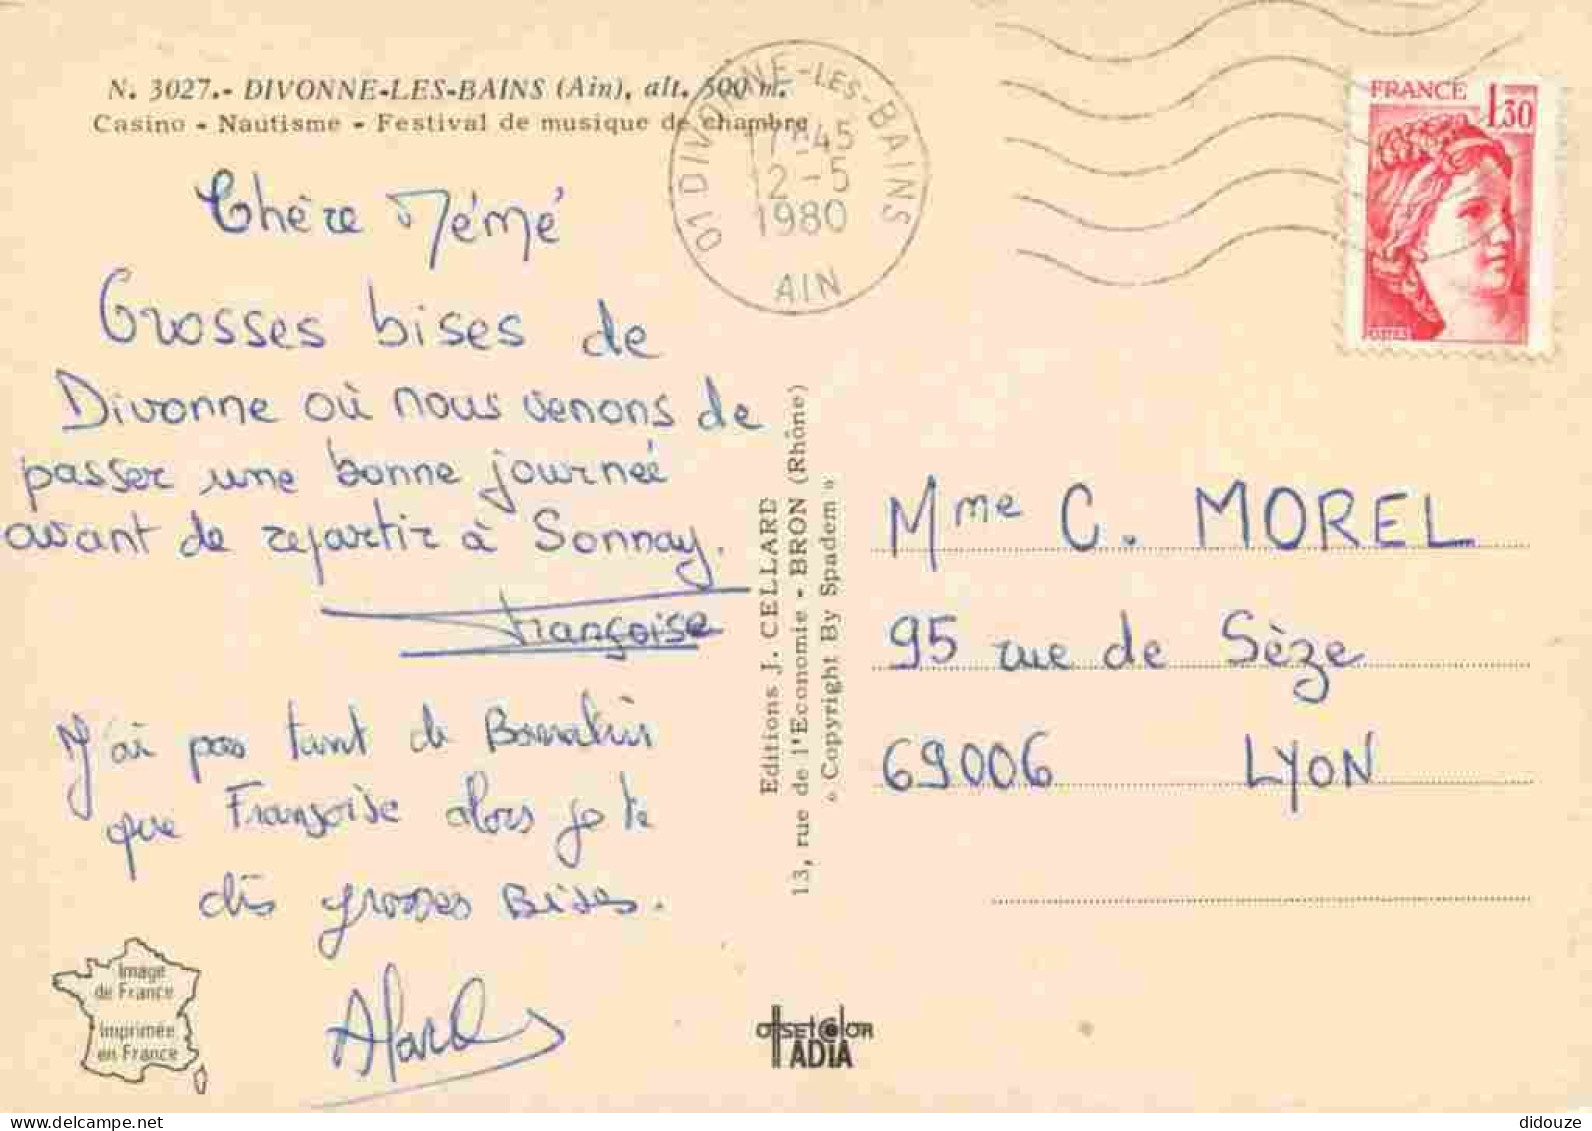 N. 3027.- DIVONNE-LES-BAINS (Ain), alt. 500 m.
Casino - Nautisme - Festival de musique de chambre
01 DIVONNE-LES-BAINS
17H45
12-5
1980
AIN
FRANCE 1,30
Chère Mémé
Grosses bises de
Divonne où nous venons de
passer une bonne journée
avant de repartir à Sonnay.
Françoise
J'ai pas tant de
que Françoise alors je te
dis grosses Bises.
Editions J. CELLARD
13, rue de l'Economie - BRON (Rhône)
« Copyright By Spadem »
Mme C. MOREL
95 rue de Sèze
69006 LYON
Image
de France
Imprimée
en France
OFFSET COLOR
ADIA
delcampe.net
didouze